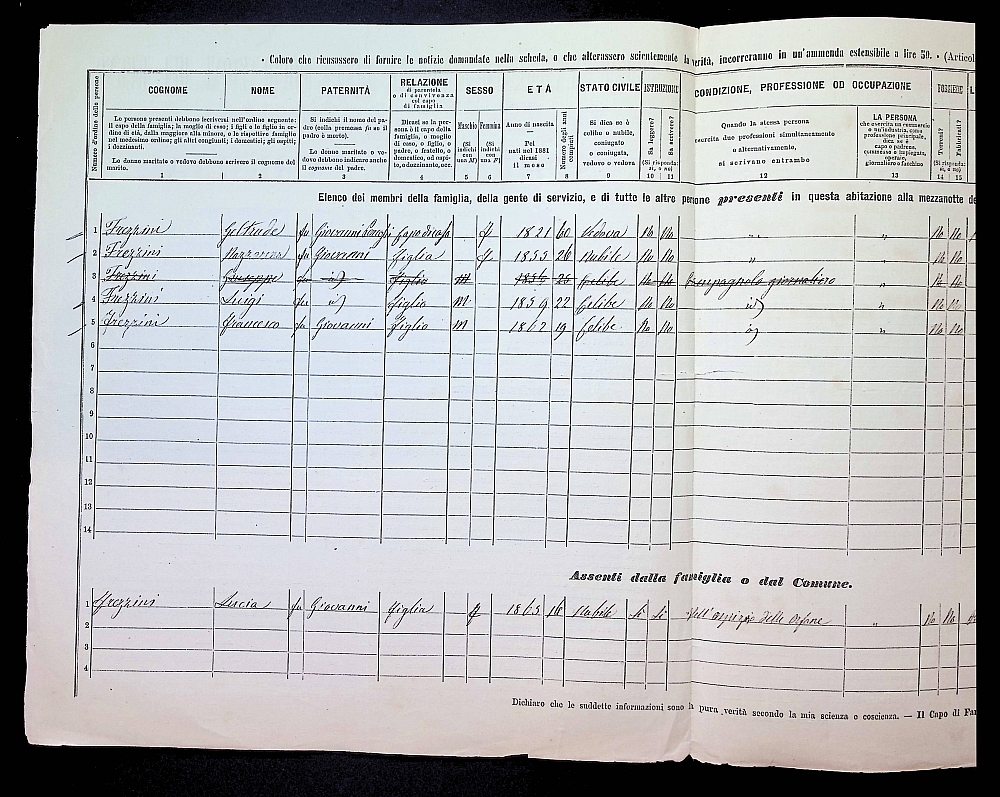 • Coloro che ricusassero di fornire le notizie domandate nella scheda, o che alterassero scientemente la verità, incorreranno in un'ammenda estensibile a lire 50. • (Articol
Numero d'ordine delle persone
COGNOME NOME PATERNITÀ RELAZIONE di parentela o di convivenza col capo di famiglia SESSO ETÀ STATO CIVILE ISTRUZIONE CONDIZIONE, PROFESSIONE OD OCCUPAZIONE
Le persone presenti debbono iscriversi nell'ordine seguente: il capo della famiglia; la moglie di esso; i figli e le figlie in ordine di età, dalla maggiore alla minore, e le rispettive famiglie nel medesimo ordine; gli altri congiunti; i domestici; gli ospiti; i dozzinanti.
Le donne maritate o vedove debbono scrivere il cognome del marito.
Si indichi il nome del padre (colla premessa fu se il padre è morto).
Le donne maritate o vedove debbono indicare anche il cognome del padre.
Dicasi se la persona è il capo della famiglia, o moglie di esso, o figlio, o padre, o fratello, o domestico, od ospite, o dozzinante, ecc.
Maschio (Si indichi con una M)
Femmina (Si indichi con una F)
Anno di nascita
Pei nati nel 1881 dicasi il mese
Numero degli anni compiuti
Si dica se è celibe o nubile, coniugato o coniugata, vedovo o vedova
Sa leggere? Sa scrivere?
(Si risponda: sì, o no)
Quando la stessa persona esercita due professioni simultaneamente o alternativamente, si scrivano entrambe
LA PERSONA che esercita un commercio o un'industria, come professione principale, dica se è capo o padrone, commesso o impiegato, operaio, giornaliero o facchino
(Si risponda: sì, o no)
1 2 3 4 5 6 7 8 9 10 11 12 13 14 15
Elenco dei membri della famiglia, della gente di servizio, e di tutte le altre persone presenti in questa abitazione alla mezzanotte de
1 Frezzini Geltrude fu Giovanni capo di casa f 1821 60 Vedova No No " " No No
2 Frezzini fu Giovanni figlia f 1855 26 Nubile No No " " No No
3 Frezzini Giuseppe fu id figlio m 1856 25 celibe No No Campagnolo giornaliero " No No
4 Frezzini Luigi fu id figlio m 1859 22 Celibe No No id " No No
5 Frezzini Francesco fu Giovanni figlio m 1862 19 celibe No No id " No No
6
7
8
9
10
11
12
13
14
Assenti dalla famiglia o dal Comune.
1 Frezzini Lucia fu Giovanni figlia f 1865 16 Nubile Si Si Nell'ospizio delle Orfane " No No
2
3
4
Dichiaro che le suddette informazioni sono la pura verità secondo la mia scienza o coscienza. — Il Capo di Fam